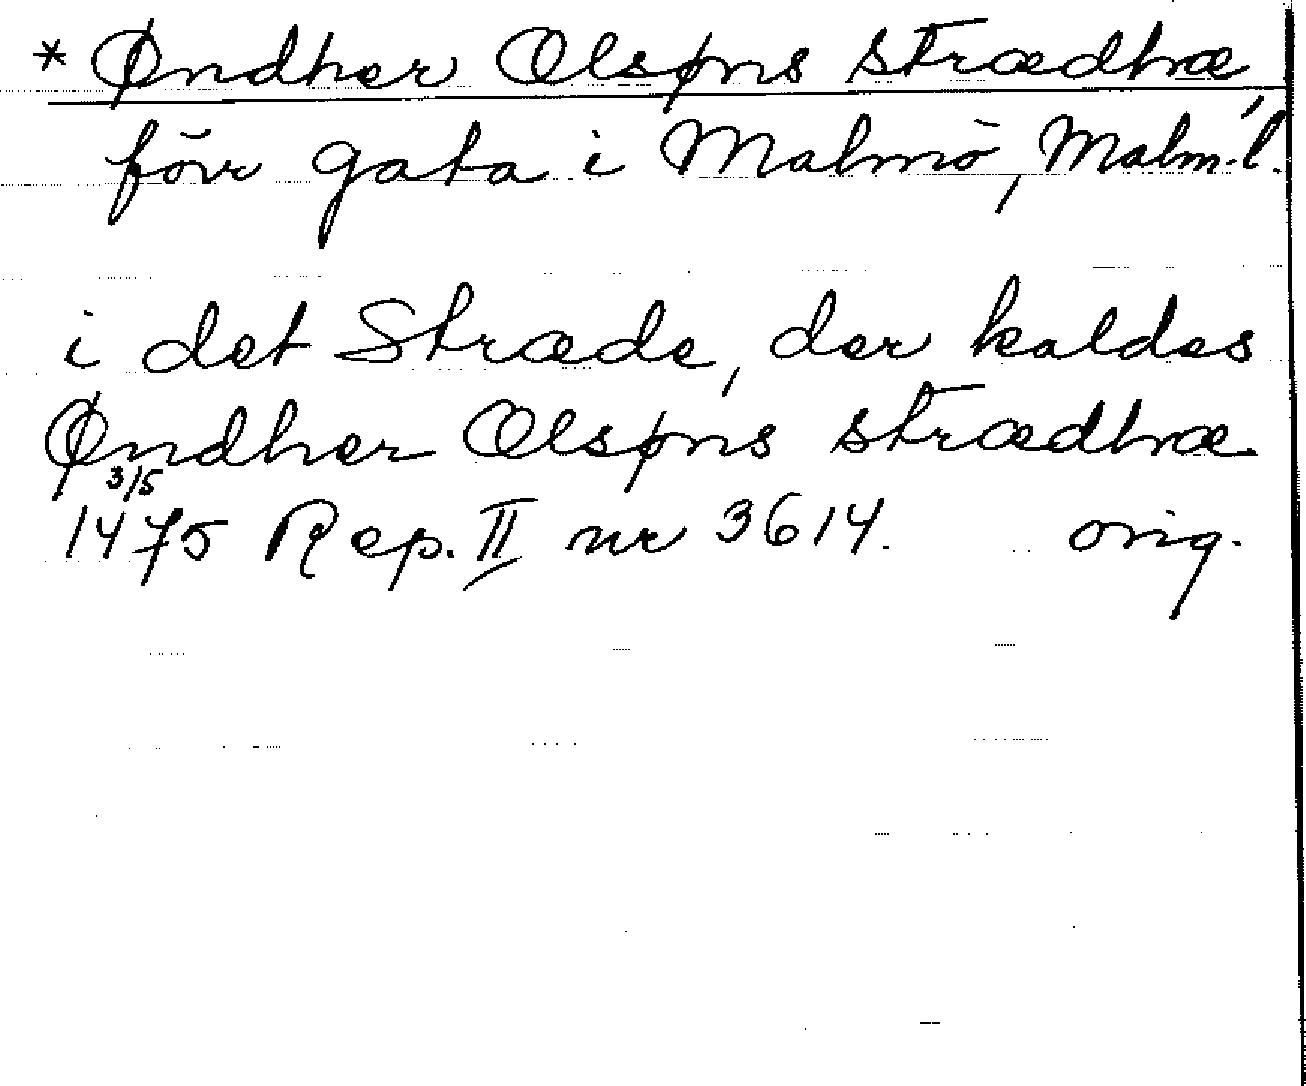 * Øndher Olsøns strædhæ,
förr gata i Malmö, Malm. l.
i det Stræde, der kaldes
Øndher Olsøns strædhæ
3/5
1475 Rep. II nr 3614. orig.